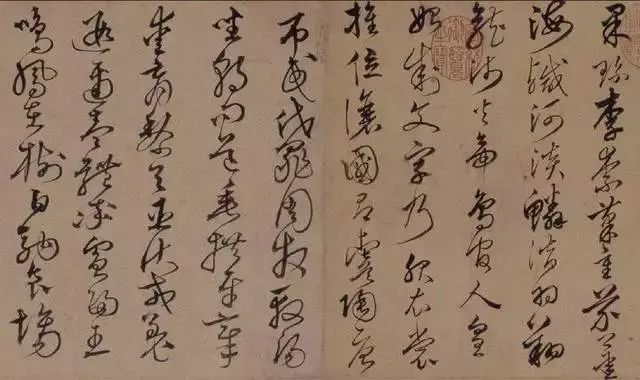 果珍李柰菜重芥薑
海鹹河淡鱗潛羽翔
龍師火帝鳥官人皇
始制文字乃服衣裳
推位讓國有虞陶唐
吊民伐罪周發殷湯
坐朝問道垂拱平章
愛育黎首臣伏戎羌
遐邇壹體率賓歸王
鳴鳳在樹白駒食場